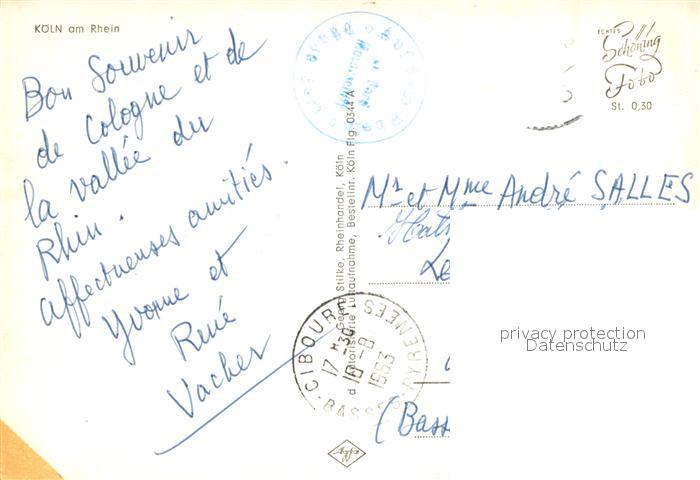 KÖLN am Rhein
Bon Souvenir
de Cologne et de
la vallée du
Rhin.
affectueuses amitiés.
Yvonne et
René
Vacher
Stilke, Rheinhandel, Köln
Luftaufnahme, Bestellnr. Köln Flg. 0344 A
ECHTES
Schöning
Foto
St. 0,30
Mr et Mme André SALLES
privacy protection
Datenschutz
(Bass
CIBOURE
17 H 30
10-8
1963
BASSES-PYRENEES
Agfa